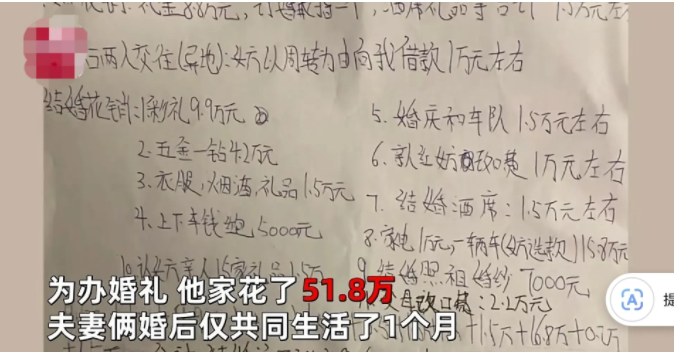 礼金8.8万元,订婚戒指一个,酒席礼品等合计1.5万元
后两人交往(异地):女方以周转为由向我借款1万元左右
结婚花销:1彩礼9.9万元
2.五金一钻4.2万元
3.衣服,烟酒,礼品1.5万元
4.上下车钱包5000元
5.婚庆和车队1.5万元左右
6.亲红女方改口费1万元左右
7.结婚酒席:1.5万元左右
8.家电1万元,一辆车(女方选款)15.8万元
9.结婚照租婚纱7000元
改口费:2.2万元
为办婚礼 他家花了51.8万
夫妻俩婚后仅共同生活了1个月
+1.5万+16.8万+0.7万
A
提